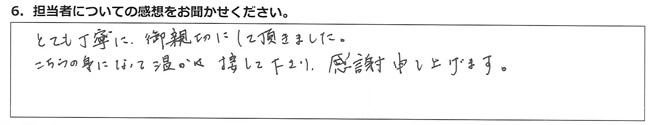 6. 担当者についての感想をお聞かせください。
とても丁寧に、御親切にして頂きました。
こちらの身になって温かく接して下さり、感謝申し上げます。